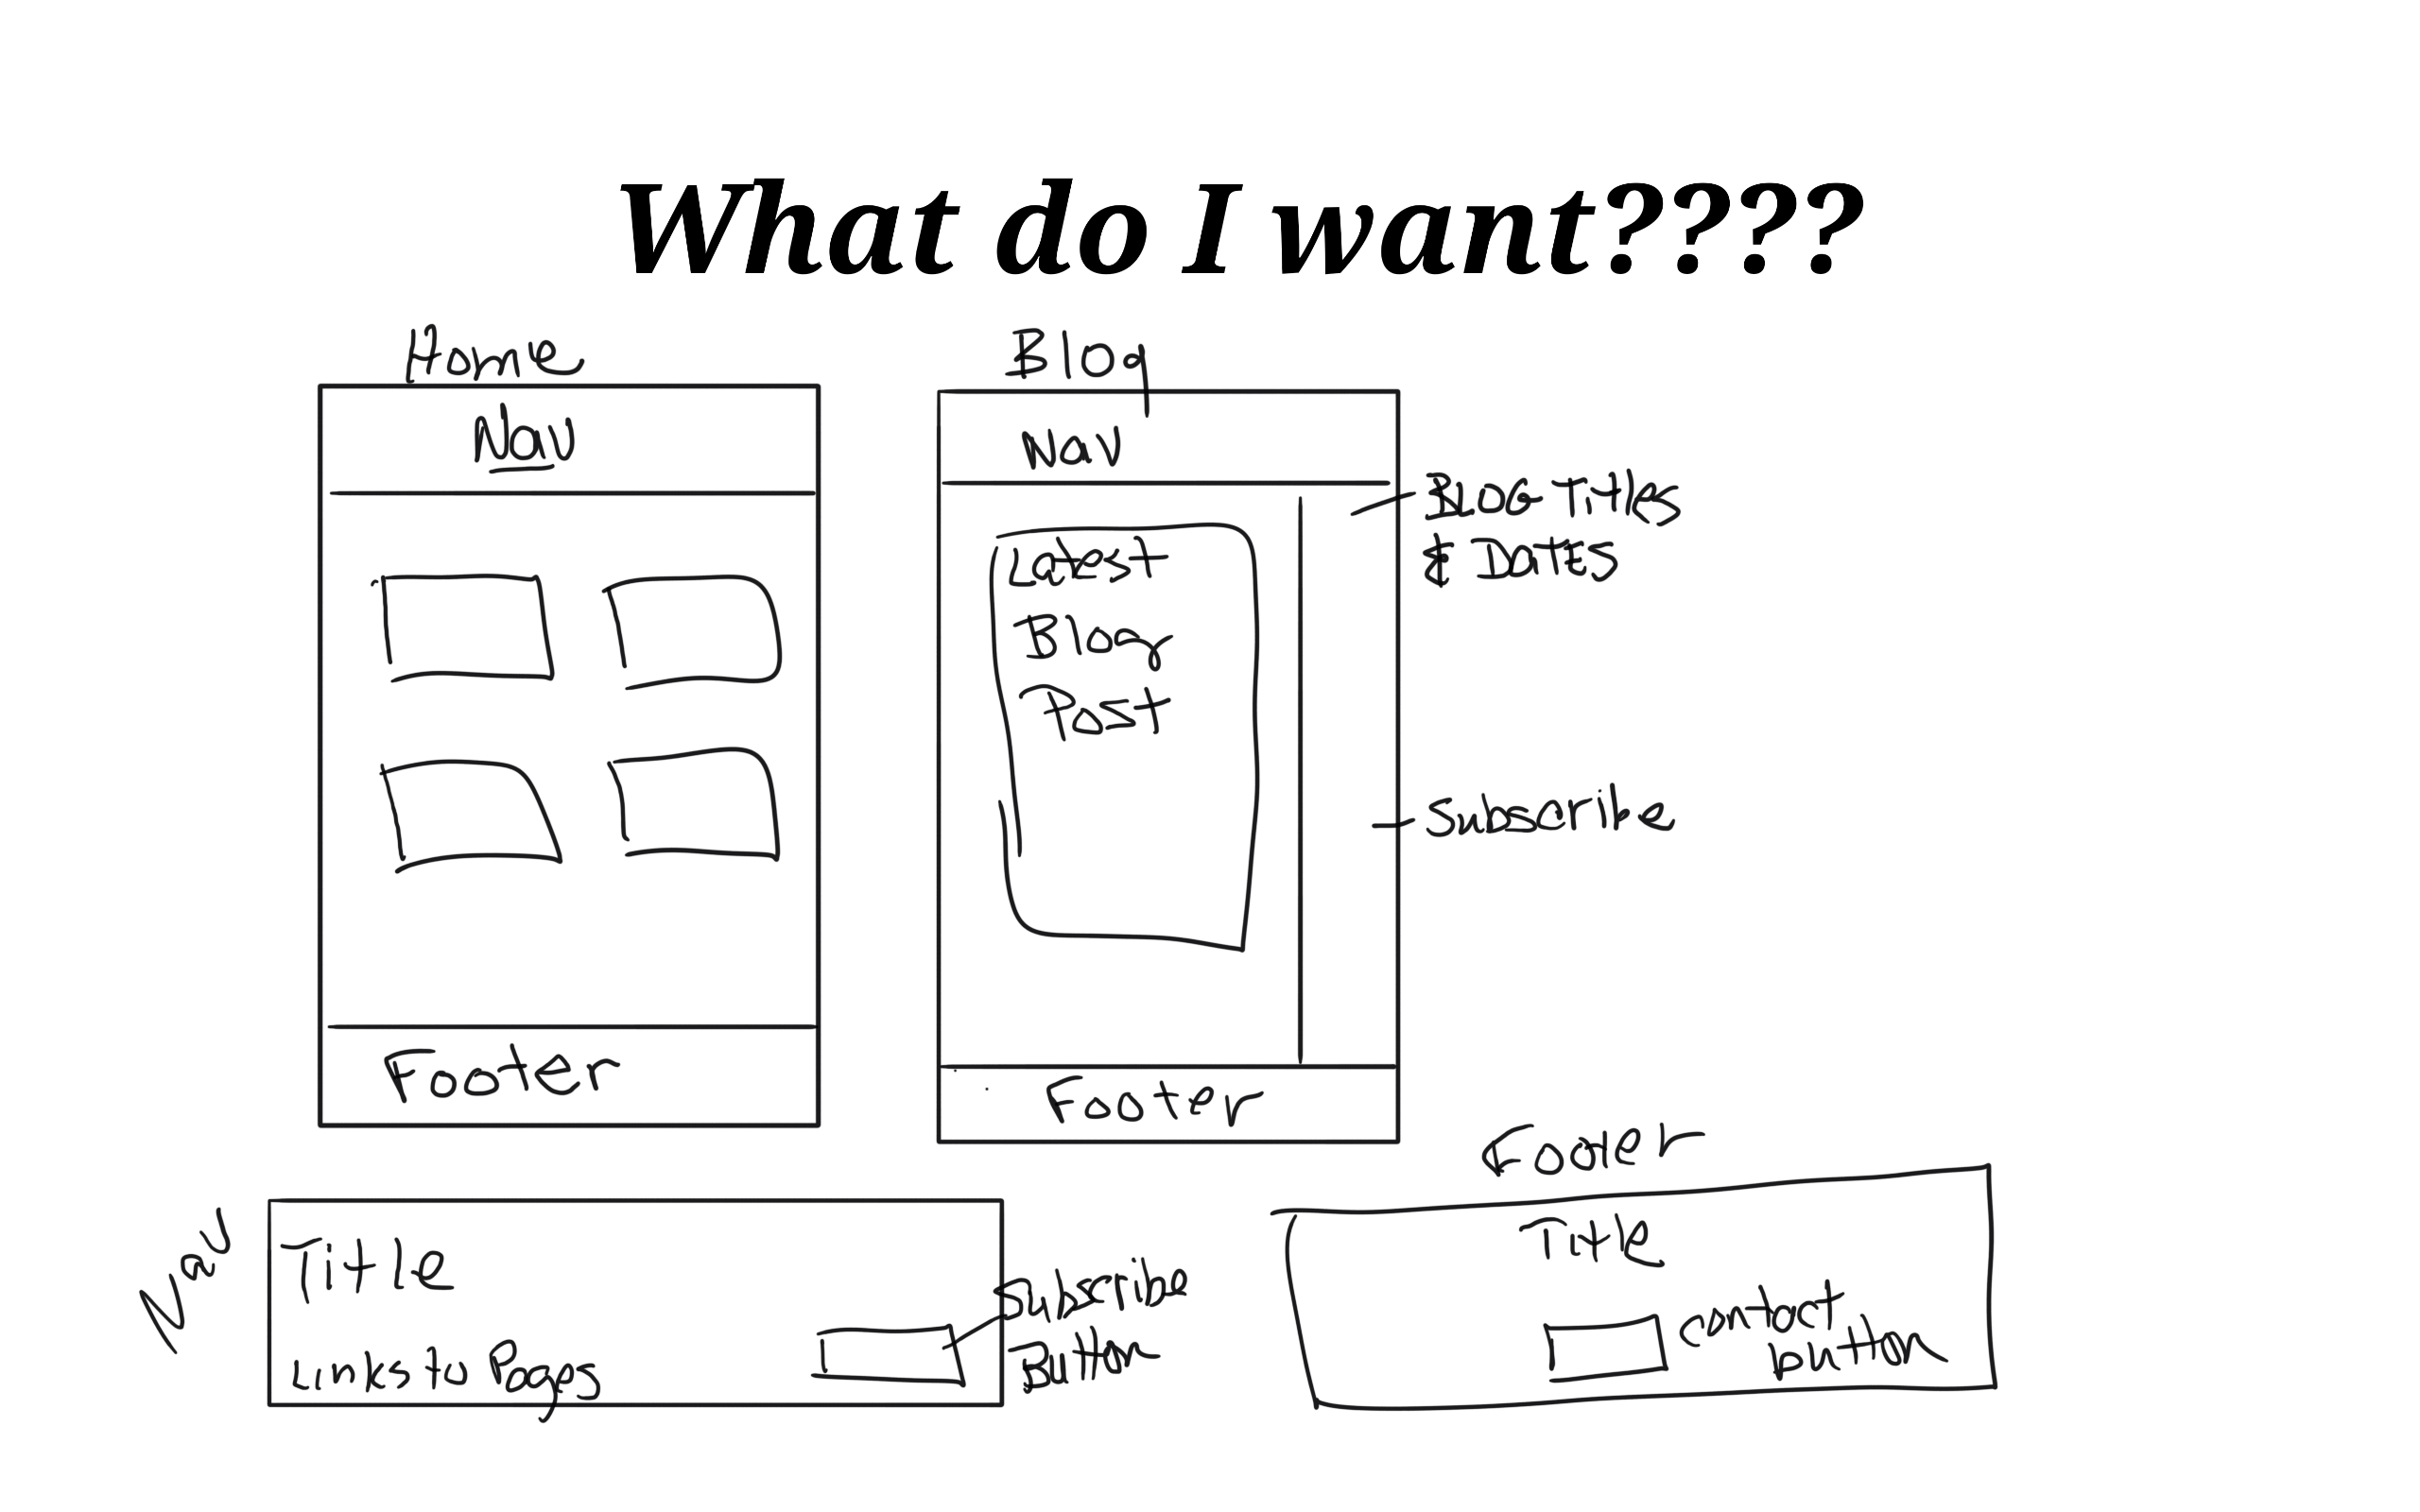 What do I want????
Home
Nav
Footer
Blog
Nav
Latest
Blog
Post
BLOG Titles
& Dates
Subscribe
Footer
Nav
Title
Links to Pages
Subscribe
Button
Footer
Title
contact
button